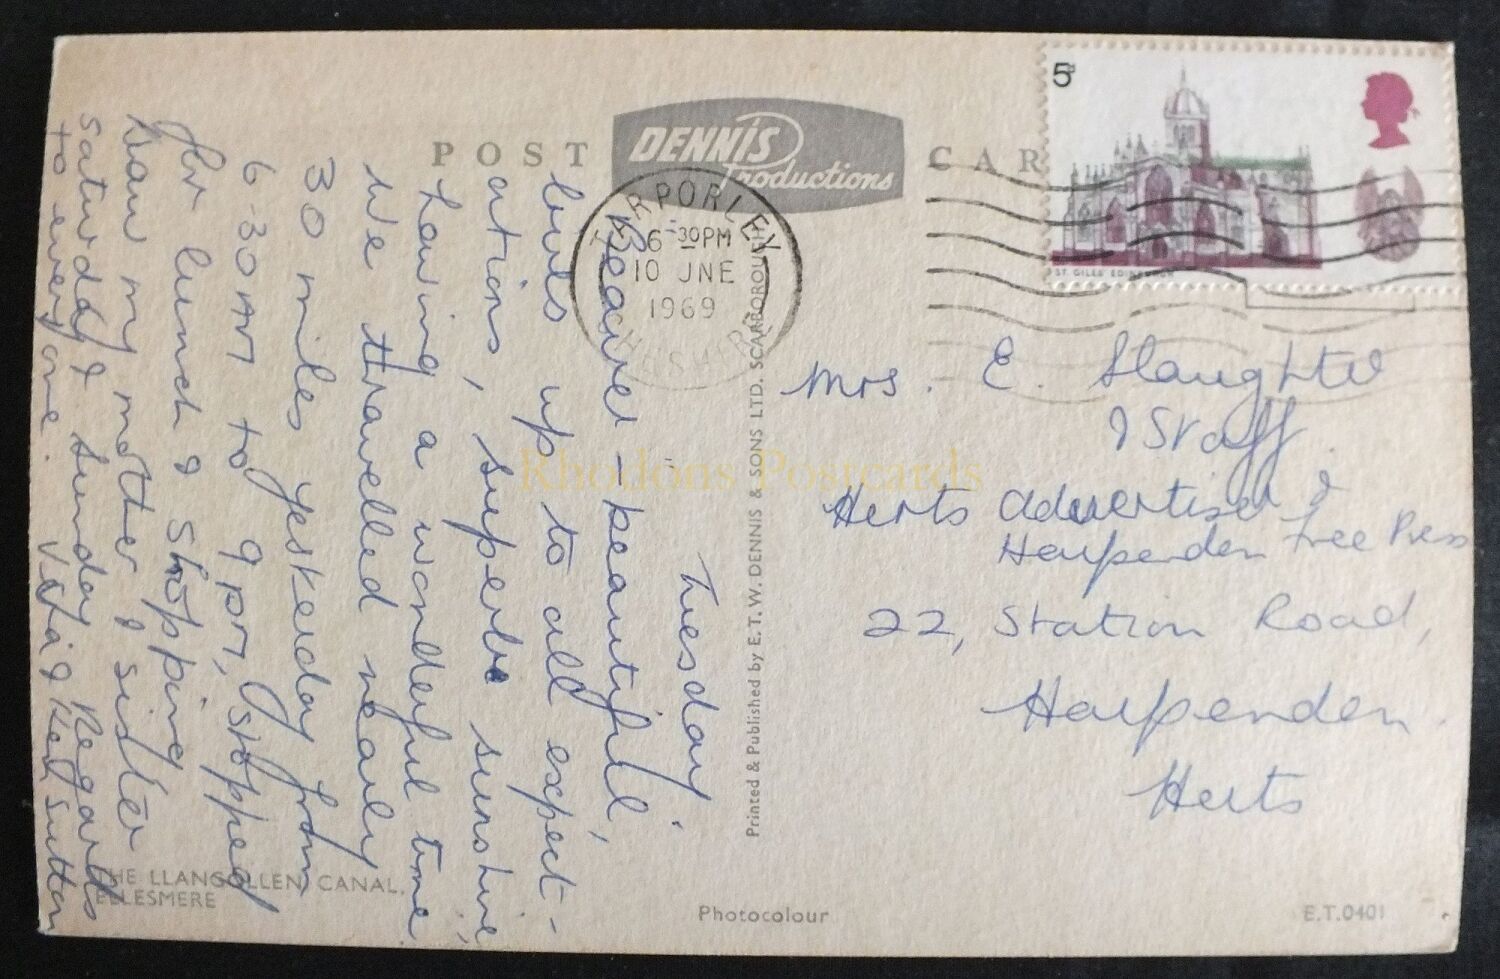 POST CARD
DENNIS
Productions
5d
ST. GILES' EDINBURGH
TARPORLEY
6-30PM
10 JNE
1969
CHESHIRE
Tuesday.
- beautiful,
boats up to all expect-
ations, superb sunshine,
having a wonderful time.
We travelled nearly
30 miles yesterday from
6-30AM to 9pm, stopped
for lunch & shopping
Saw my mother & sister
Saturday & Sunday. Regards
to everyone. & Ken Sutton
Mrs. E. Slaughter
& Staff
Herts Advertiser &
Harpenden Free Press
22, Station Road,
Harpenden
Herts
Printed & Published by E.T.W. DENNIS & SONS LTD. SCARBOROUGH
THE LLANGOLLEN CANAL,
ELLESMERE
Photocolour
E.T.0401
Rhodons Postcards